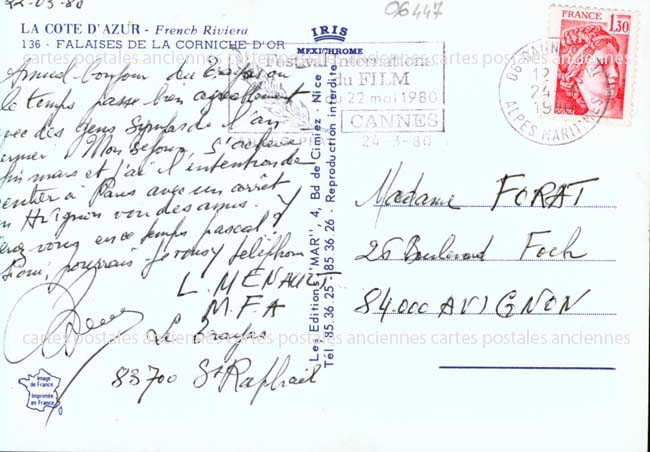 22-03-80
06447
LA COTE D'AZUR - French Riviera
136 - FALAISES DE LA CORNICHE D'OR
IRIS
MEXICHROME
Festival International
du FILM
22 mai 1980
CANNES
24-3-80
FRANCE
1,30
POSTES
06 CAGNES
12
24
1980
ALPES MARITIMES
Annuel bonjour du
le temps passe bien agréablement
avec des gens sympas de l'an
dernier Mon séjour s'achève
fin mars et j'ai l'intention de
rentrer à Paris avec un arrêt
en Avignon voir des amis. Y
serez vous en ce temps pascal?
pourrais-je vous téléphoner
L. MENAULT
M.F.A
83700 St Raphaël
Madame FORAT
26 Boulevard Foch
84.000 AVIGNON
Les Editions "MAR", 4, Bd de Cimiez - Nice
Tél. 85.36.25 - 85.36.26 - Reproduction interdite
Image
de France
Imprimée
en France
cartes postales anciennes cartes postales anciennes cartes postales anciennes
cartes postales anciennes cartes postales anciennes cartes postales anciennes